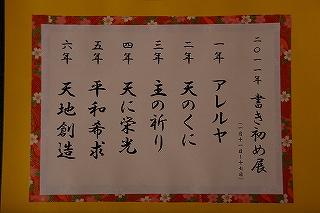 二〇一一年 書き初め展
（一月十一日〜十七日）
一年 アレルヤ
二年 天のくに
三年 主の祈り
四年 天に栄光
五年 平和希求
六年 天地創造